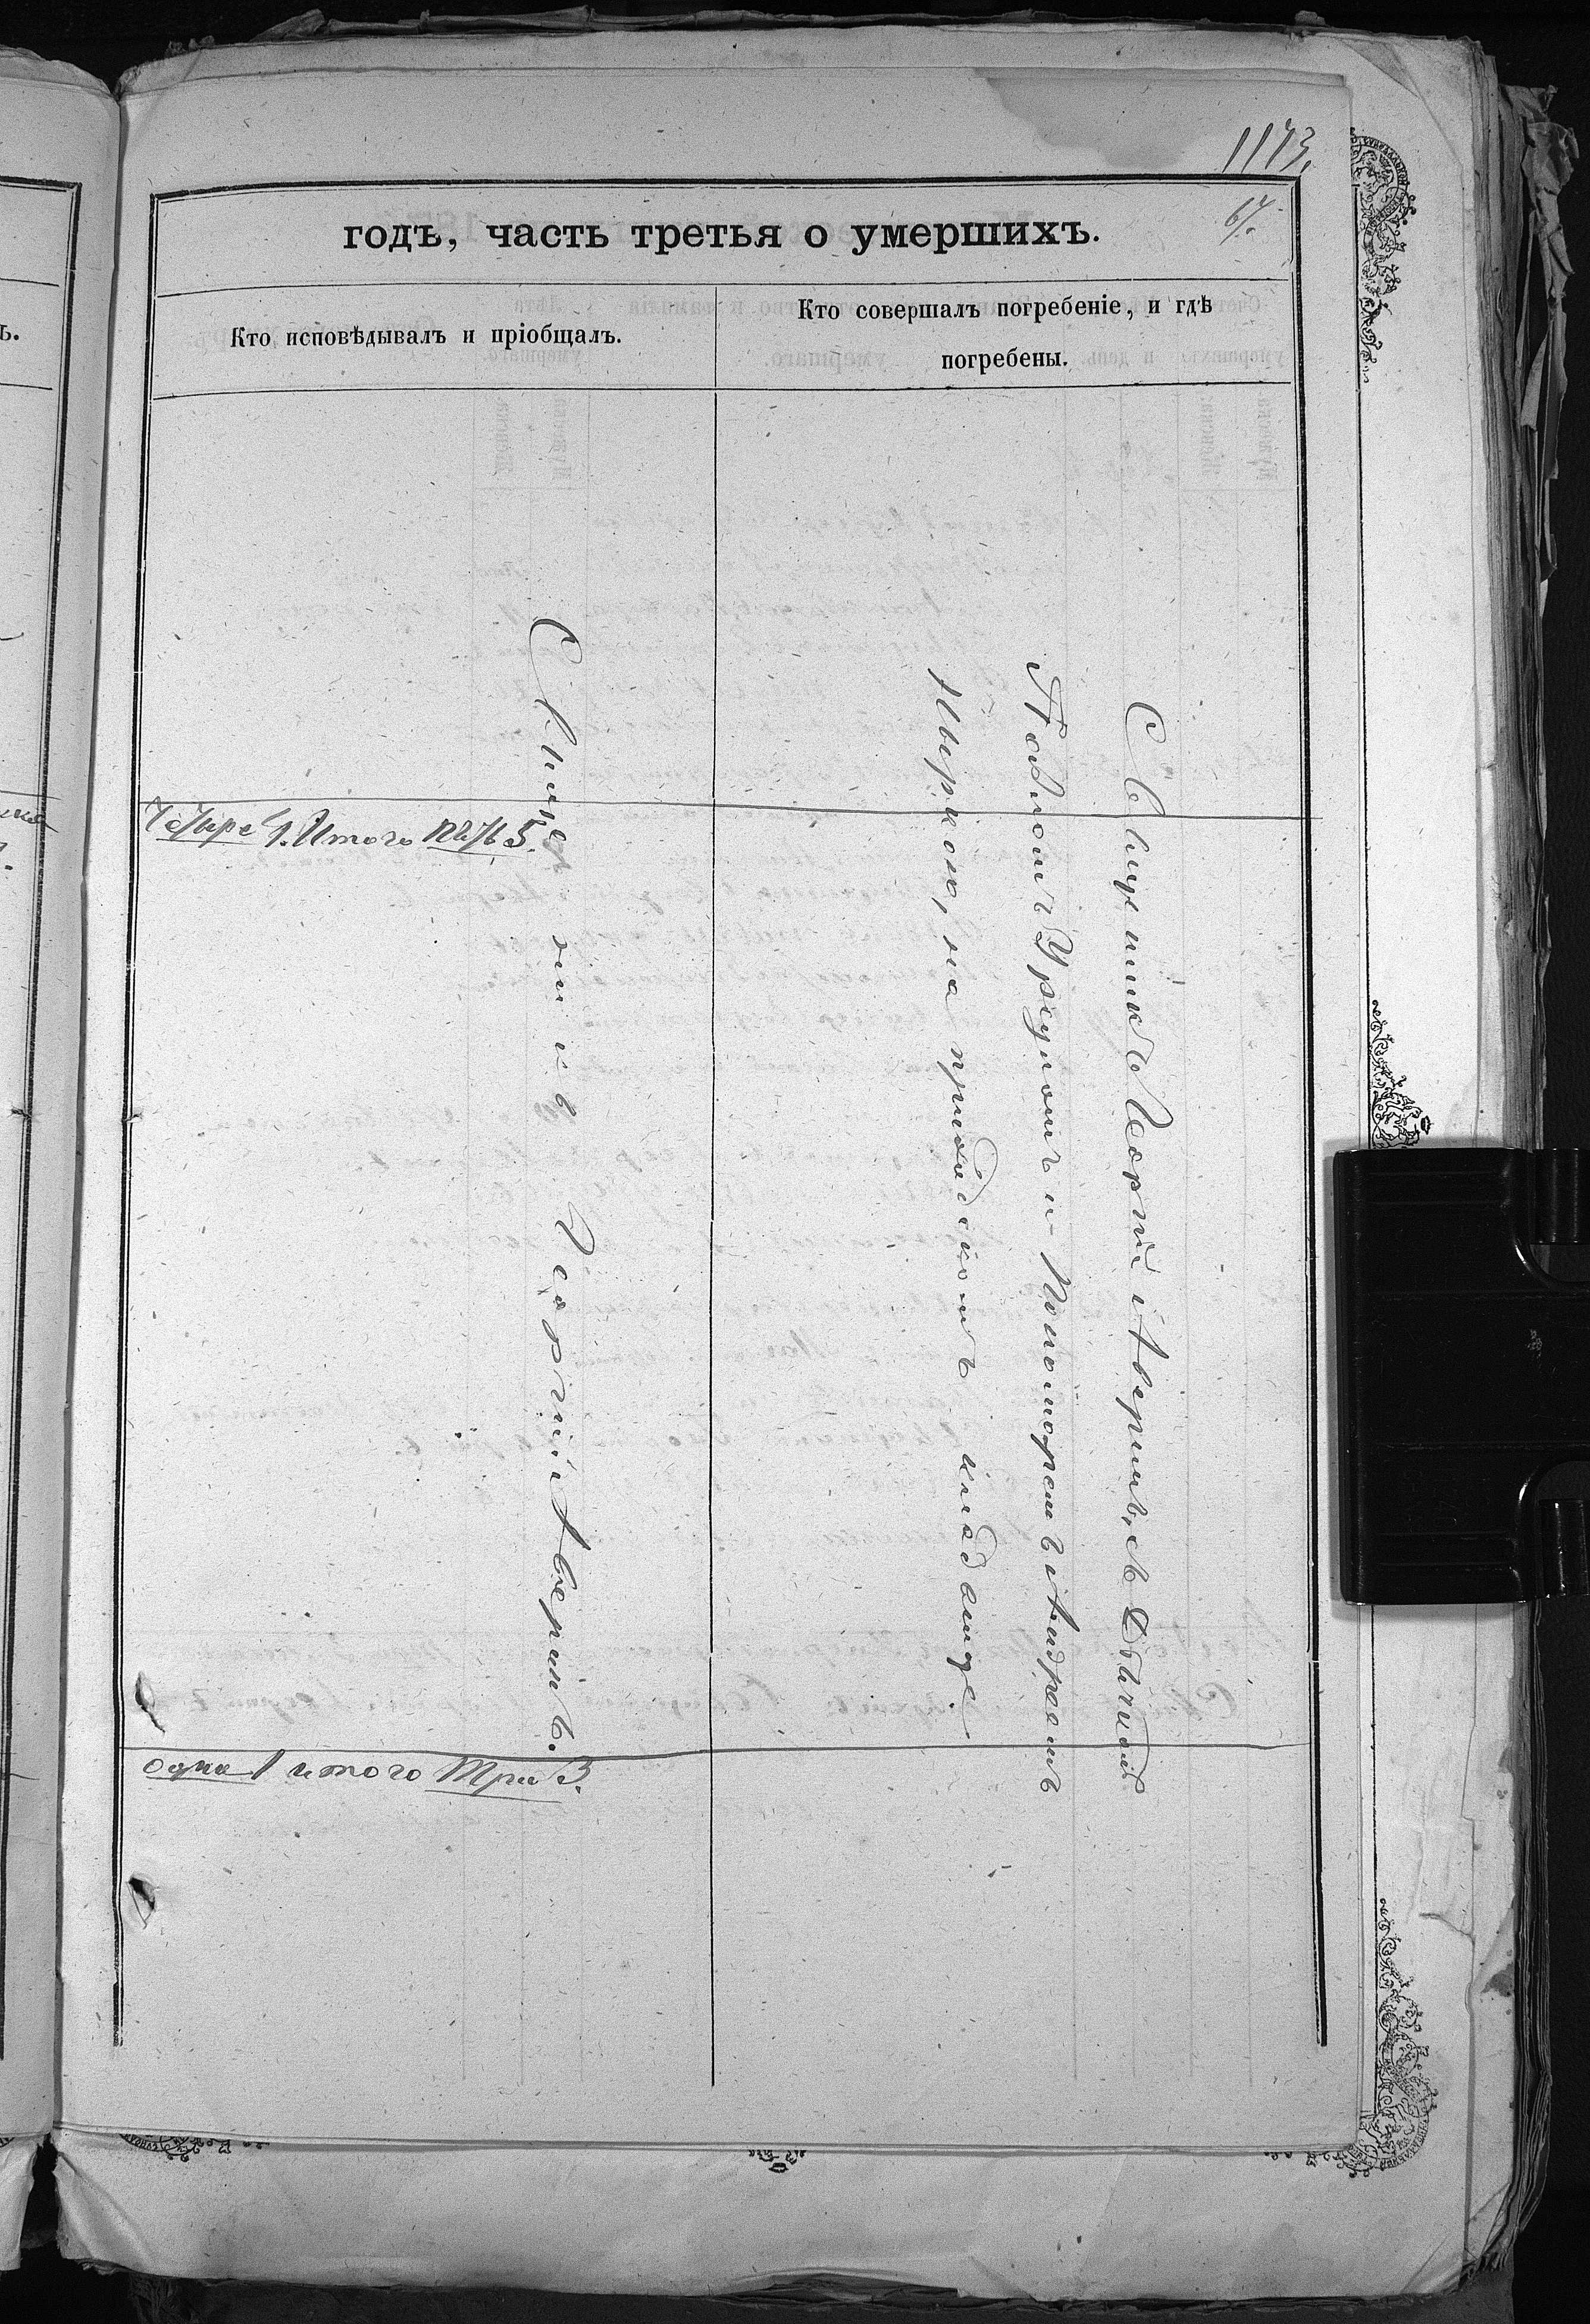 1173.
67.
годъ, часть третья о умершихъ.
Кто исповѣдывалъ и пріобщалъ.
Кто совершалъ погребеніе, и гдѣ
погребены.
Священникъ Георгій Аверинъ.
Священникъ Георгій Аверинъ, съ
Павломъ и Пономаремъ Андреемъ
на приходскомъ кладбище.
Четыре 4. Итого пять 5.
одна 1 итого три 3.